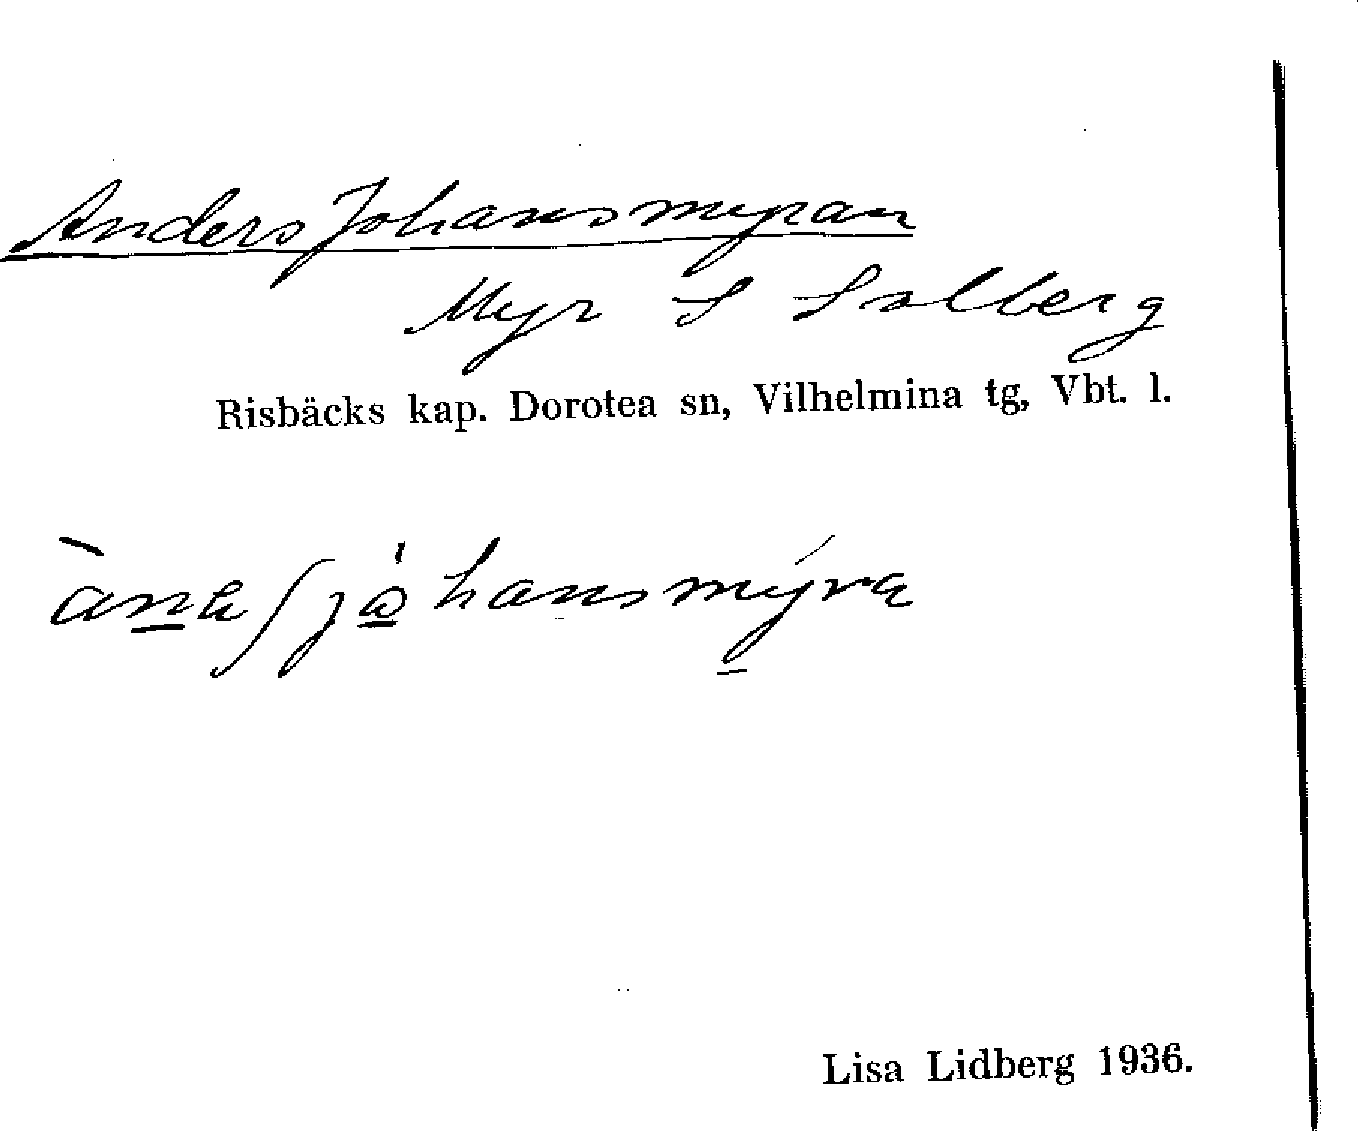 Anders Johansmyran
Myr S Solberg
Risbäcks kap. Dorotea sn, Vilhelmina tg, Vbt. l.
Lisa Lidberg 1936.